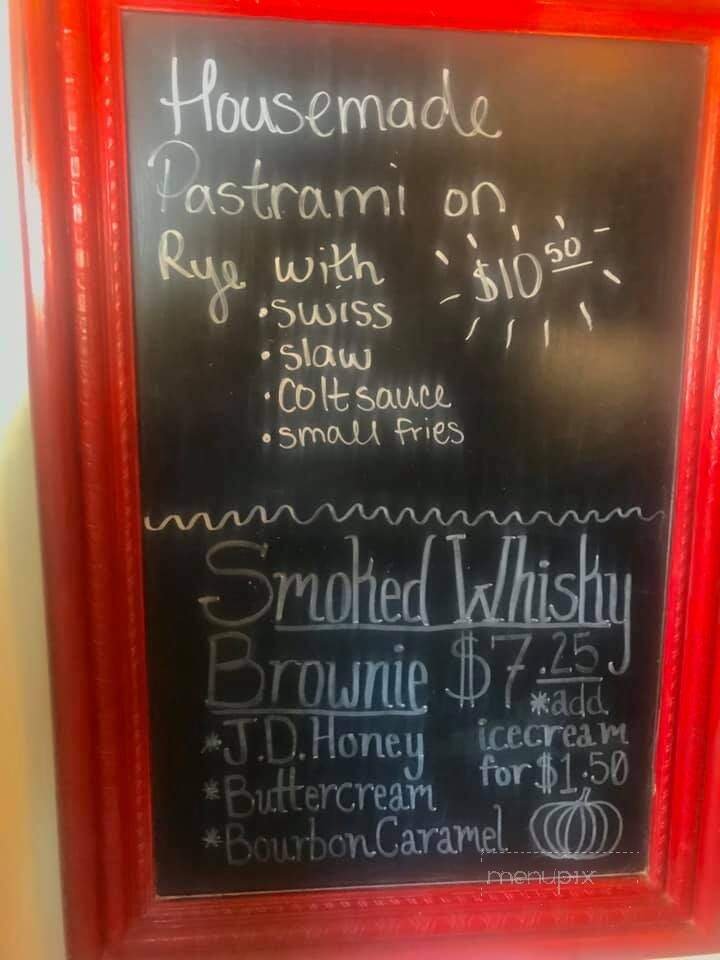 Housemade
Pastrami on
Rye with
$10 50
•swiss
•slaw
•Colt sauce
•small fries
Smoked Whisky
Brownie $7.25
*add
*J.D. Honey
icecream
for $1.50
*Buttercream
*Bourbon Caramel
menupix